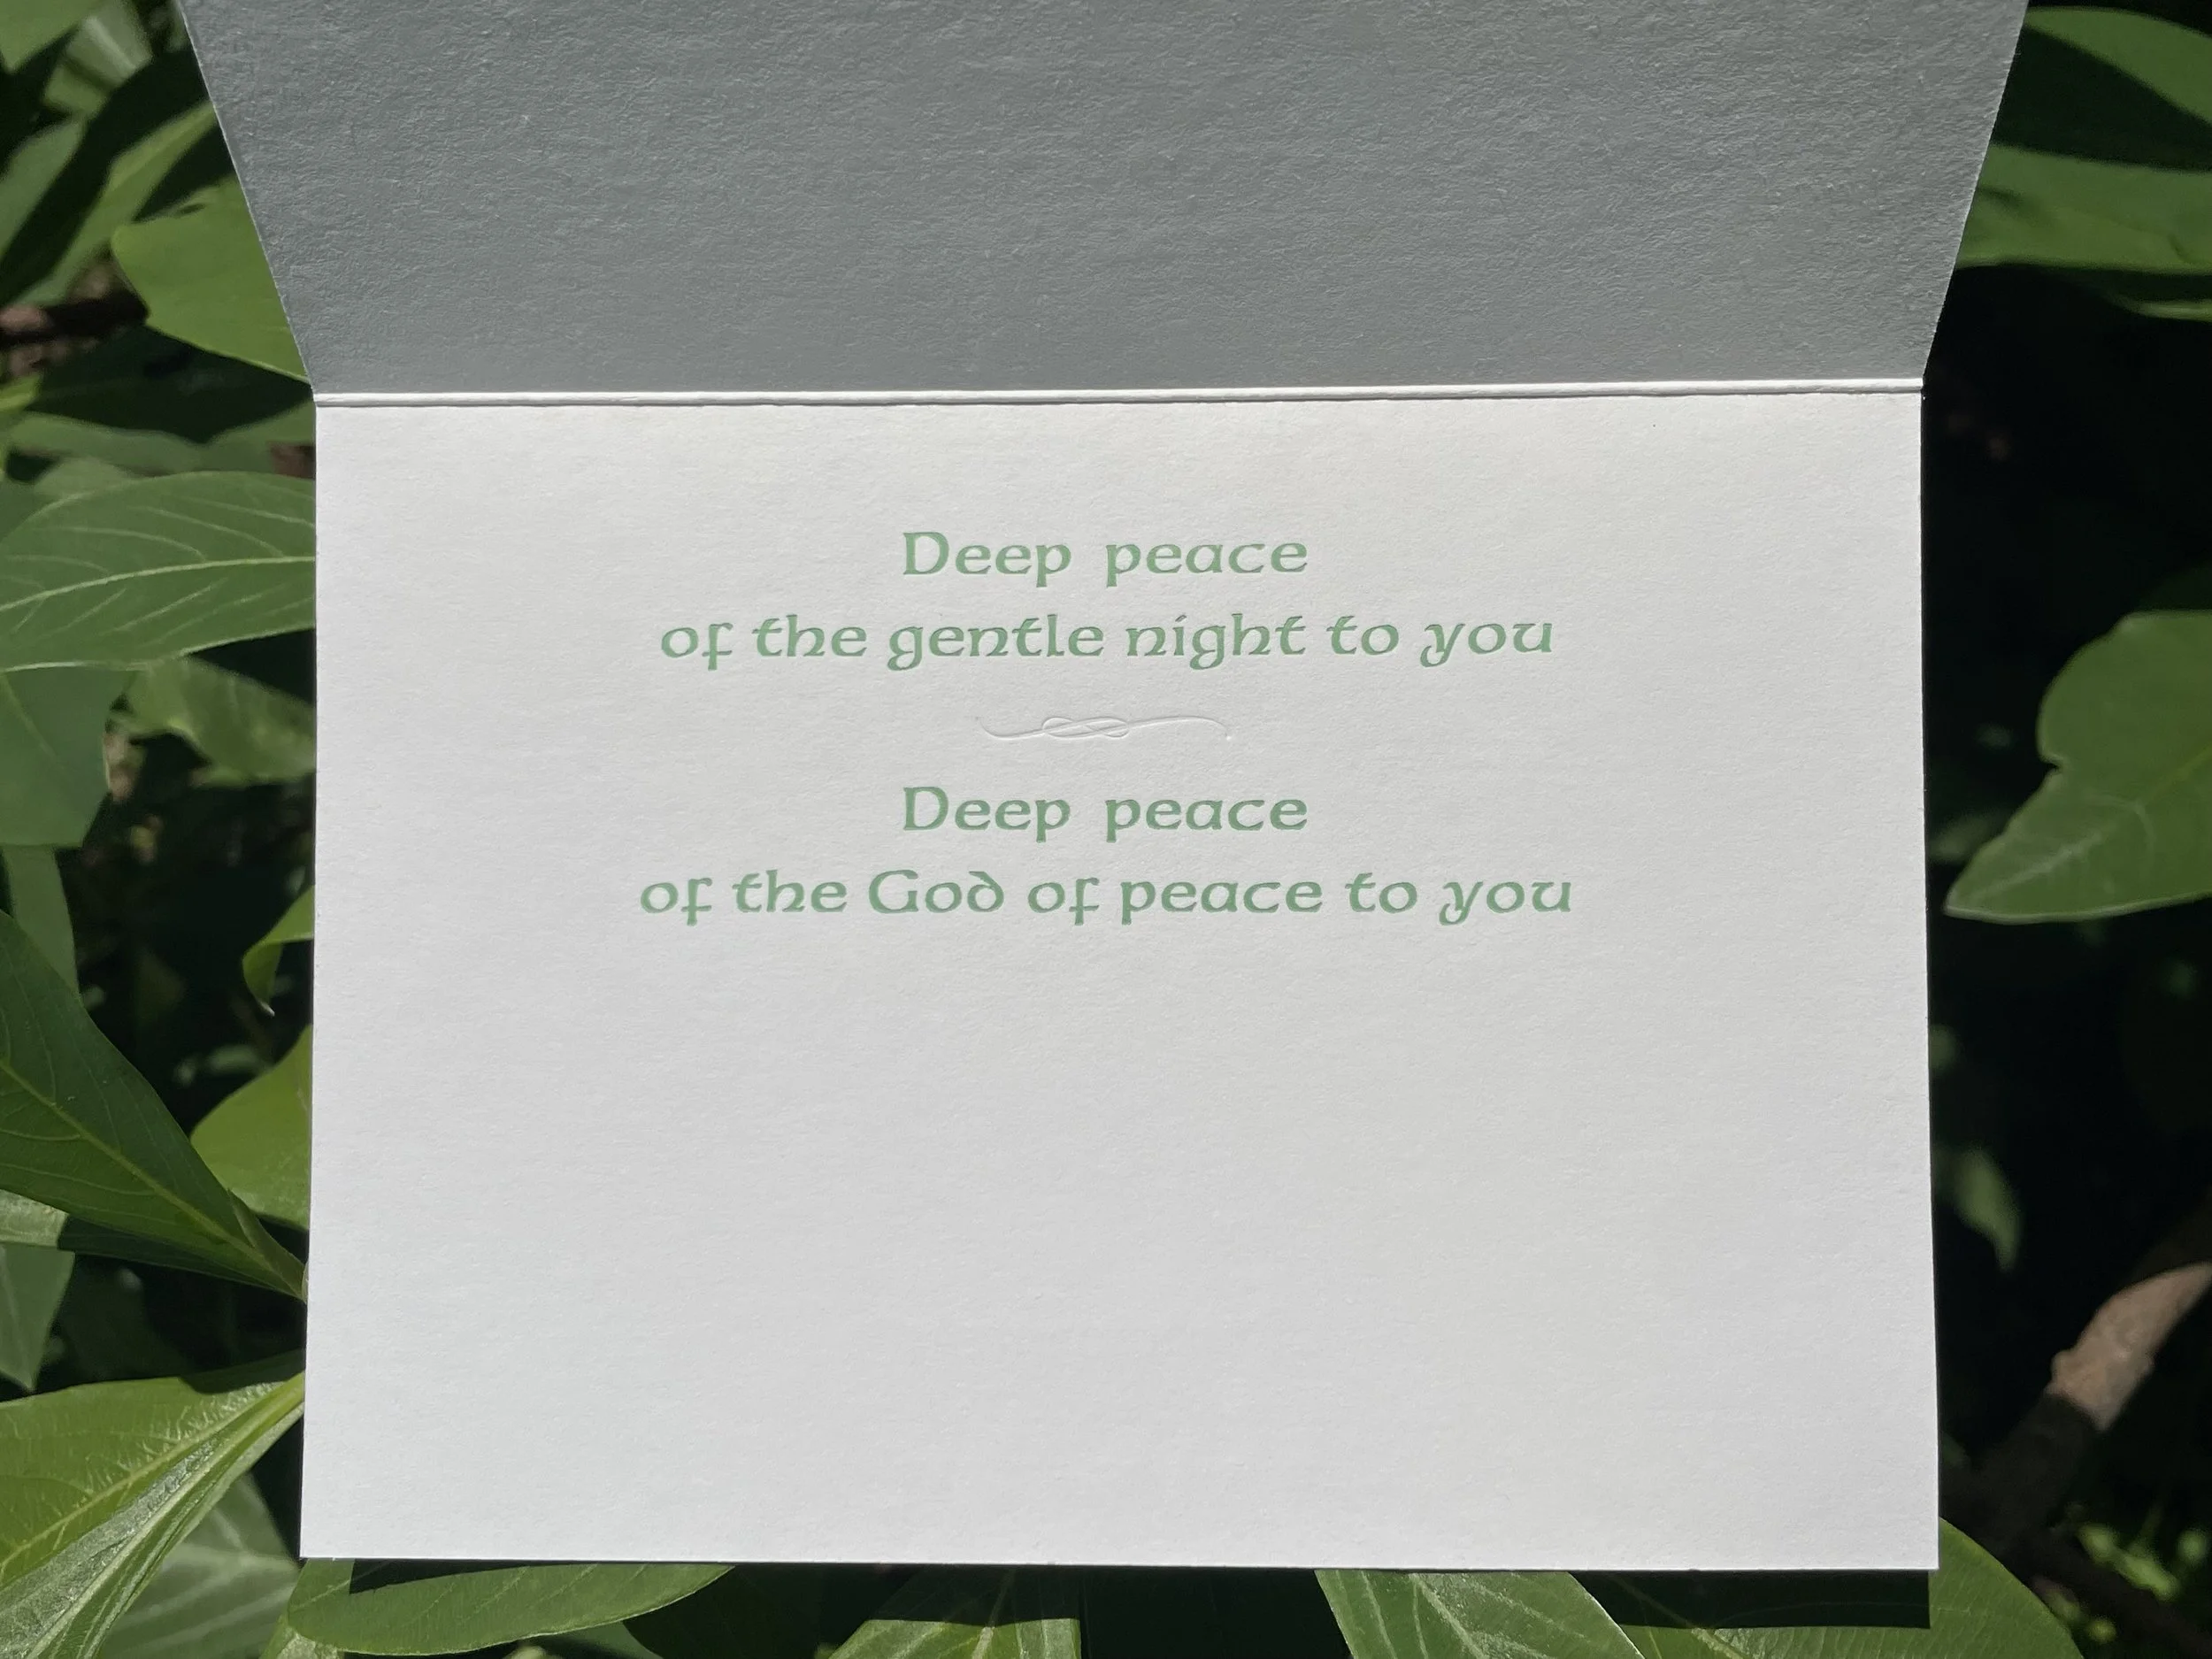 Deep peace
of the gentle night to you
Deep peace
of the God of peace to you